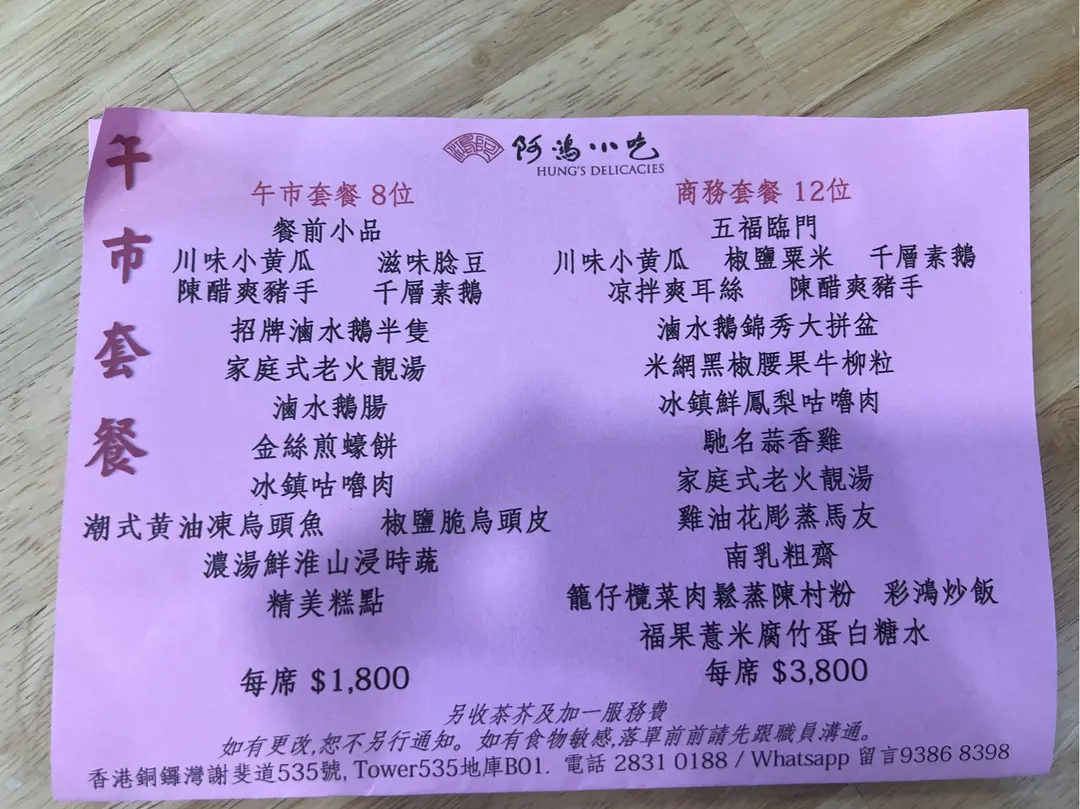 午市套餐
阿鴻小吃
HUNG'S DELICACIES
午市套餐 8位
餐前小品
川味小黄瓜 滋味腍豆
陳醋爽豬手 千層素鵝
招牌滷水鵝半隻
家庭式老火靚湯
滷水鵝腸
金絲煎蠔餅
冰鎮咕嚕肉
潮式黄油凍烏頭魚 椒鹽脆烏頭皮
濃湯鮮淮山浸時蔬
精美糕點
每席 $1,800
商務套餐 12位
五福臨門
川味小黄瓜 椒鹽粟米 千層素鵝
凉拌爽耳絲 陳醋爽豬手
滷水鵝錦秀大拼盆
米網黑椒腰果牛柳粒
冰鎮鮮鳳梨咕嚕肉
馳名蒜香雞
家庭式老火靚湯
雞油花彫蒸馬友
南乳粗齋
籠仔欖菜肉鬆蒸陳村粉 彩鴻炒飯
福果薏米腐竹蛋白糖水
每席 $3,800
另收茶芥及加一服務費
如有更改,恕不另行通知。如有食物敏感,落單前前請先跟職員溝通。
香港銅鑼灣謝斐道535號, Tower535地庫B01. 電話 2831 0188 / Whatsapp 留言9386 8398